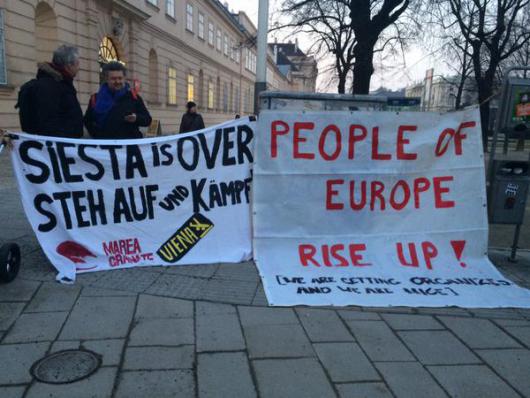 SiESTA is OVER
STEH AUF UND KÄMPF
MAREA
GRANATE
VIENA
PEOPLE OF
EUROPE
RISE UP!
[WE ARE GETTING ORGANIZED
AND WE ARE NICE]